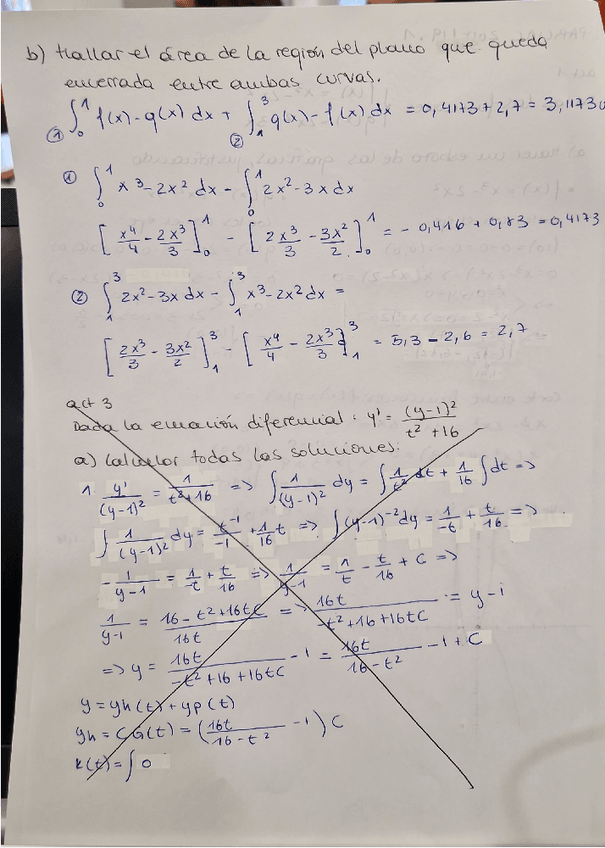 b) Hallar el área de la región del plano que queda
encerrada entre ambas curvas.
① ∫₀¹ f(x) - g(x) dx + ② ∫₁³ g(x) - f(x) dx = 0,4173 + 2,7 = 3,1173
① ∫₀¹ x³ - 2x² dx - ∫₀¹ 2x² - 3x dx
[x⁴/4 - 2x³/3]₀¹ - [2x³/3 - 3x²/2]₀¹ = - 0,416 + 0,83 = 0,4173
② ∫₁³ 2x² - 3x dx - ∫₁³ x³ - 2x² dx =
[2x³/3 - 3x²/2]₁³ - [x⁴/4 - 2x³/3]₁³ = 5,3 - 2,6 = 2,7
act 3
Dada la ecuación diferencial: y' = (y-1)²/t² + 16
a) Calcular todas las soluciones:
1 y'/(y-1)² = 1/t² + 16 => ∫ 1/(y-1)² dy = ∫ 1/t² dt + 1/16 ∫ dt =>
∫ 1/(y-1)² dy = t⁻¹/-1 + 1/16 t => ∫ (y-1)⁻² dy = 1/-t + t/16 =>
- 1/y-1 = 1/-t + t/16 => 1/y-1 = 1/t - t/16 + C =>
1/y-1 = 16 - t² + 16tC/16t => 16t/-t² + 16 + 16tC = y - 1
=> y = 16t/-t² + 16 + 16tC - 1 = 16t/16 - t² - 1 + C
y = yh(t) + yp(t)
yh = C G(t) = (16t/16 - t² - 1) C
k(t) = ∫ 0